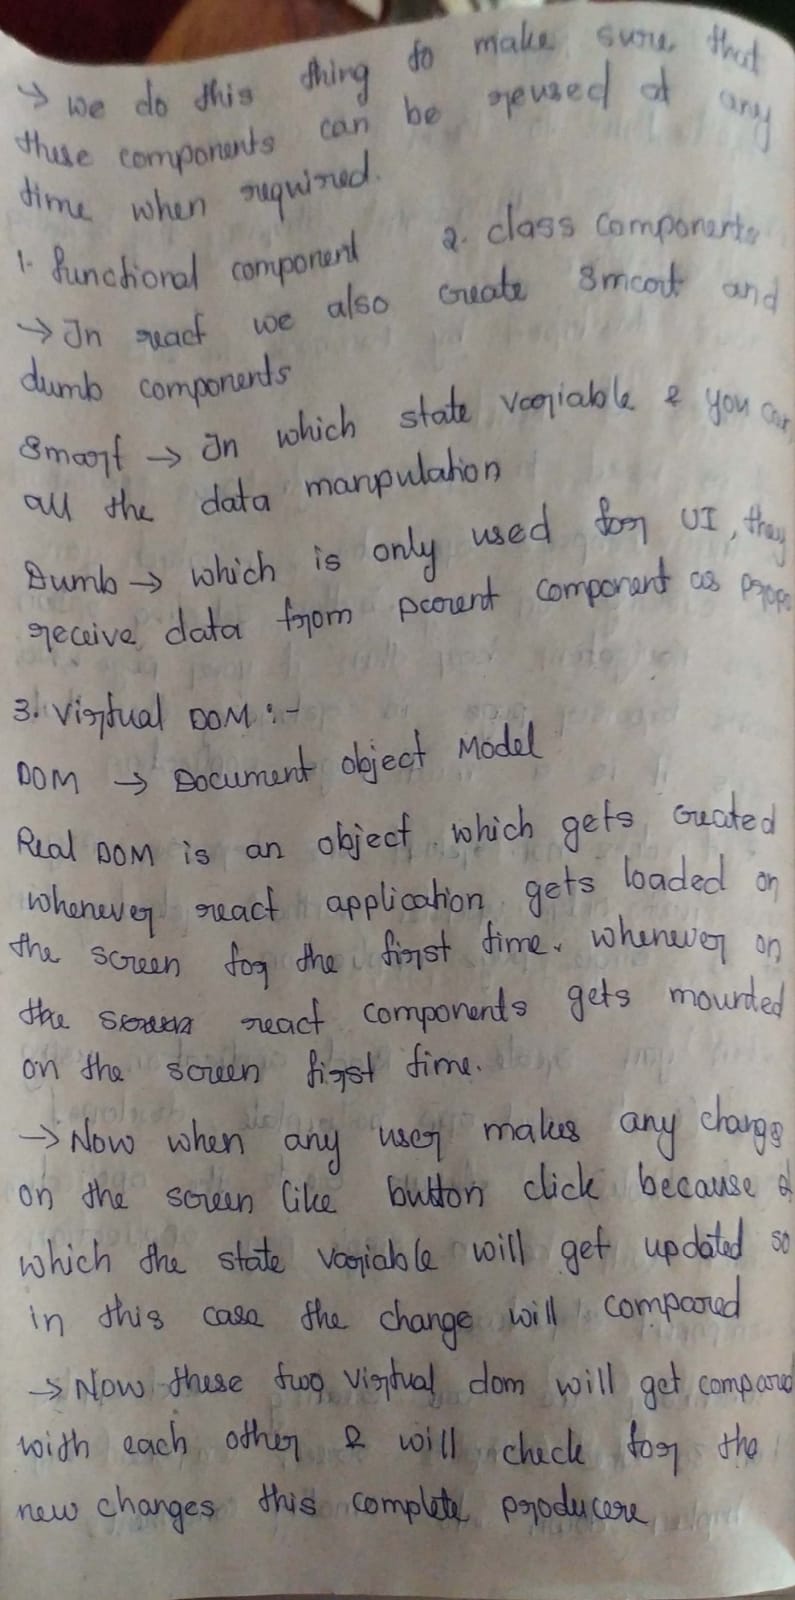 → we do this thing to make sure that
these components can be reused at any
time when required.
1. functional component 2. class components
→ In react we also create Smart and
dumb components
Smart → In which state variable & you can
all the data manpulation
Dumb → which is only used for UI, they
receive data from parent component as props
3. Virtual DOM :-
DOM → Document object Model
Real DOM is an object which gets created
whenever react application gets loaded on
the screen for the first time. whenever on
the screen react components gets mounted
on the screen first time.
→ Now when any user makes any change
on the screen like button click because of
which the state variable will get updated so
in this case the change will compared
→ Now these two virtual dom will get compared
with each other & will check for the
new changes this complete producere